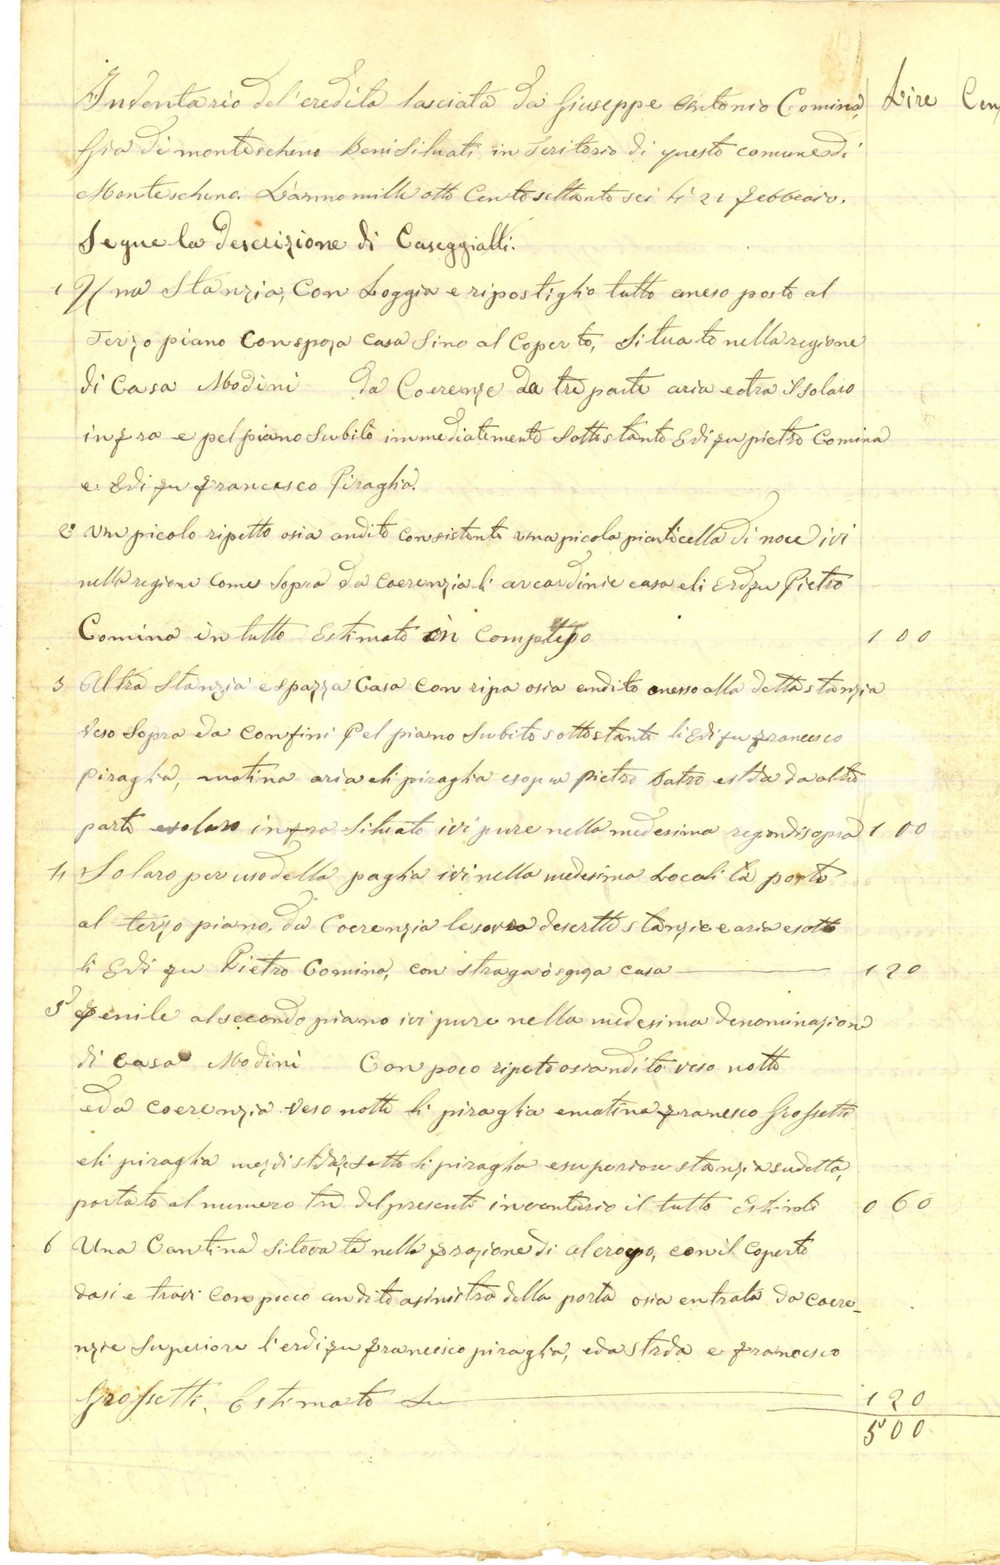 Inventario del'eredita lasciata da Giuseppe Antonio Comina, Lire Cen
Gia di montescheno Beni Situati in Teritorio di questo comune di
Montescheno. L'anno mille otto Cento settanta sei li 21 febbraio.
Segue la descrizione di Caseggiatti.
1 Una Stanzia, Con Loggia e ripostiglio tutto aneso posto al
Terzo piano Con spaza casa Sino al Coperto, Situato nella regione
di Casa Modini da Coerenze da tre parte aria ed tra il Solaro
infra e pel piano Subito immediatemente Sottostante Edi fu pietro Comina
e Edi fu francesco Piraglia.
2 Un picolo ripetto osia andito consistente una picola pianticella di noce ivi
nella regione come Sopra da Coerenzia li casa eli Erdi fu Pietro
Comina in tutto Estimato in Complesso 100
3 Altra Stanzia e spazza Casa con ripa osia andito anesso alla detta stanzia
Veso Sopra da Confini Pel piano Subito sottostante li Edi fu francesco
Piraglia, matina aria eli piraglia e sopra pietro da altra
parte e solaro infra Situato ivi pure nella medesima regon di sopra 100
4 Solaro per uso della paglia ivi nella medesima Località posto
al terzo piano, da Coerenzia le sovra descritte stanzie e aria e sotto
li Edi fu Pietro Comina, con straga o spaza casa 120
5 fenile al secondo piano ivi pure nella medesima denominazion
di Casa Modini Con poco ripeto osia andito veso notte
eda coerenzia Veso notte li piraglia e matina francesco Grossetti
eli piraglia mezdi strda, sotto li piraglia e superiore stanzia sudetta,
portato al numero tre del presente inventario il tutto Estimato 0 60
6 Una Cantina Sitovata nella frazione di al croppo, con il Coperto
dasi e travi con poco andito asinistra della porta osia entrata da Coere-
nzie Superiore l'erdi fu francesco piraglia, eda strda e francesco
Grossetti, Estimato Su 120
500